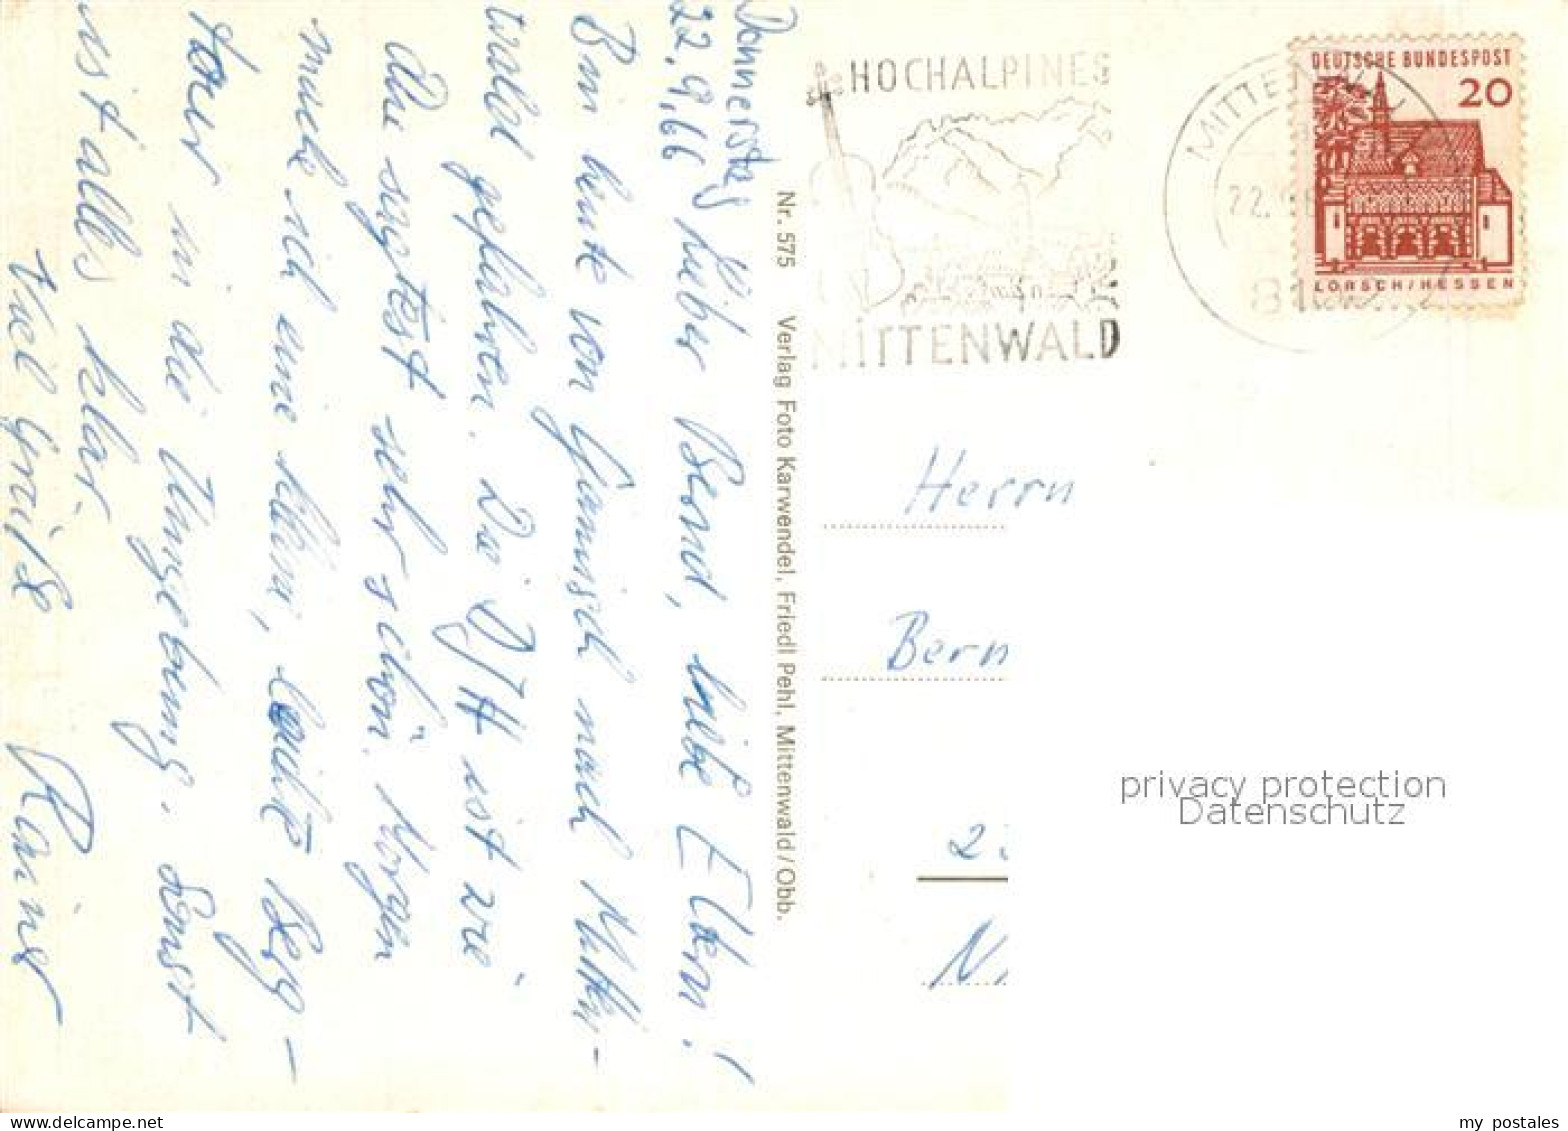 Donnerstag
22.9.66 Lieber Bernd, liebe Eltern!
Bin heute von Garmisch nach Mitten-
wald gefahren. Die DJH ist wie
du sagtest sehr schön. Morgen
mache ich eine kleine, leichte Berg-
tour in die Umgebung. Sonst
ist alles klar.
Viel Grüße Rainer
Nr. 575 Verlag Foto Karwendel, Friedl Pehl, Mittenwald/Obb.
HOCHALPINES
MITTENWALD
MITTENWAL
22.9.6
81
DEUTSCHE BUNDESPOST
20
LORSCH/HESSEN
Herrn
Bern
2
N
privacy protection
Datenschutz
my postales